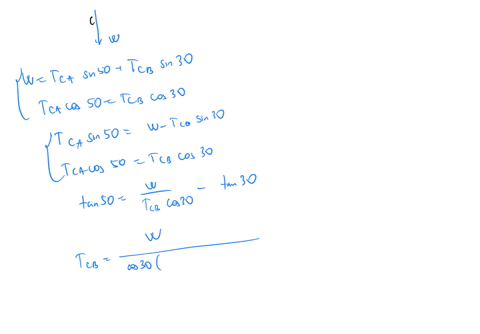 C
W
W = T_CA sin 50 + T_CB sin 30
T_CA cos 50 = T_CB cos 30
T_CA sin 50 = W - T_CB sin 30
T_CA cos 50 = T_CB cos 30
tan 50 = W / (T_CB cos 30) - tan 30
T_CB = W / cos 30 (